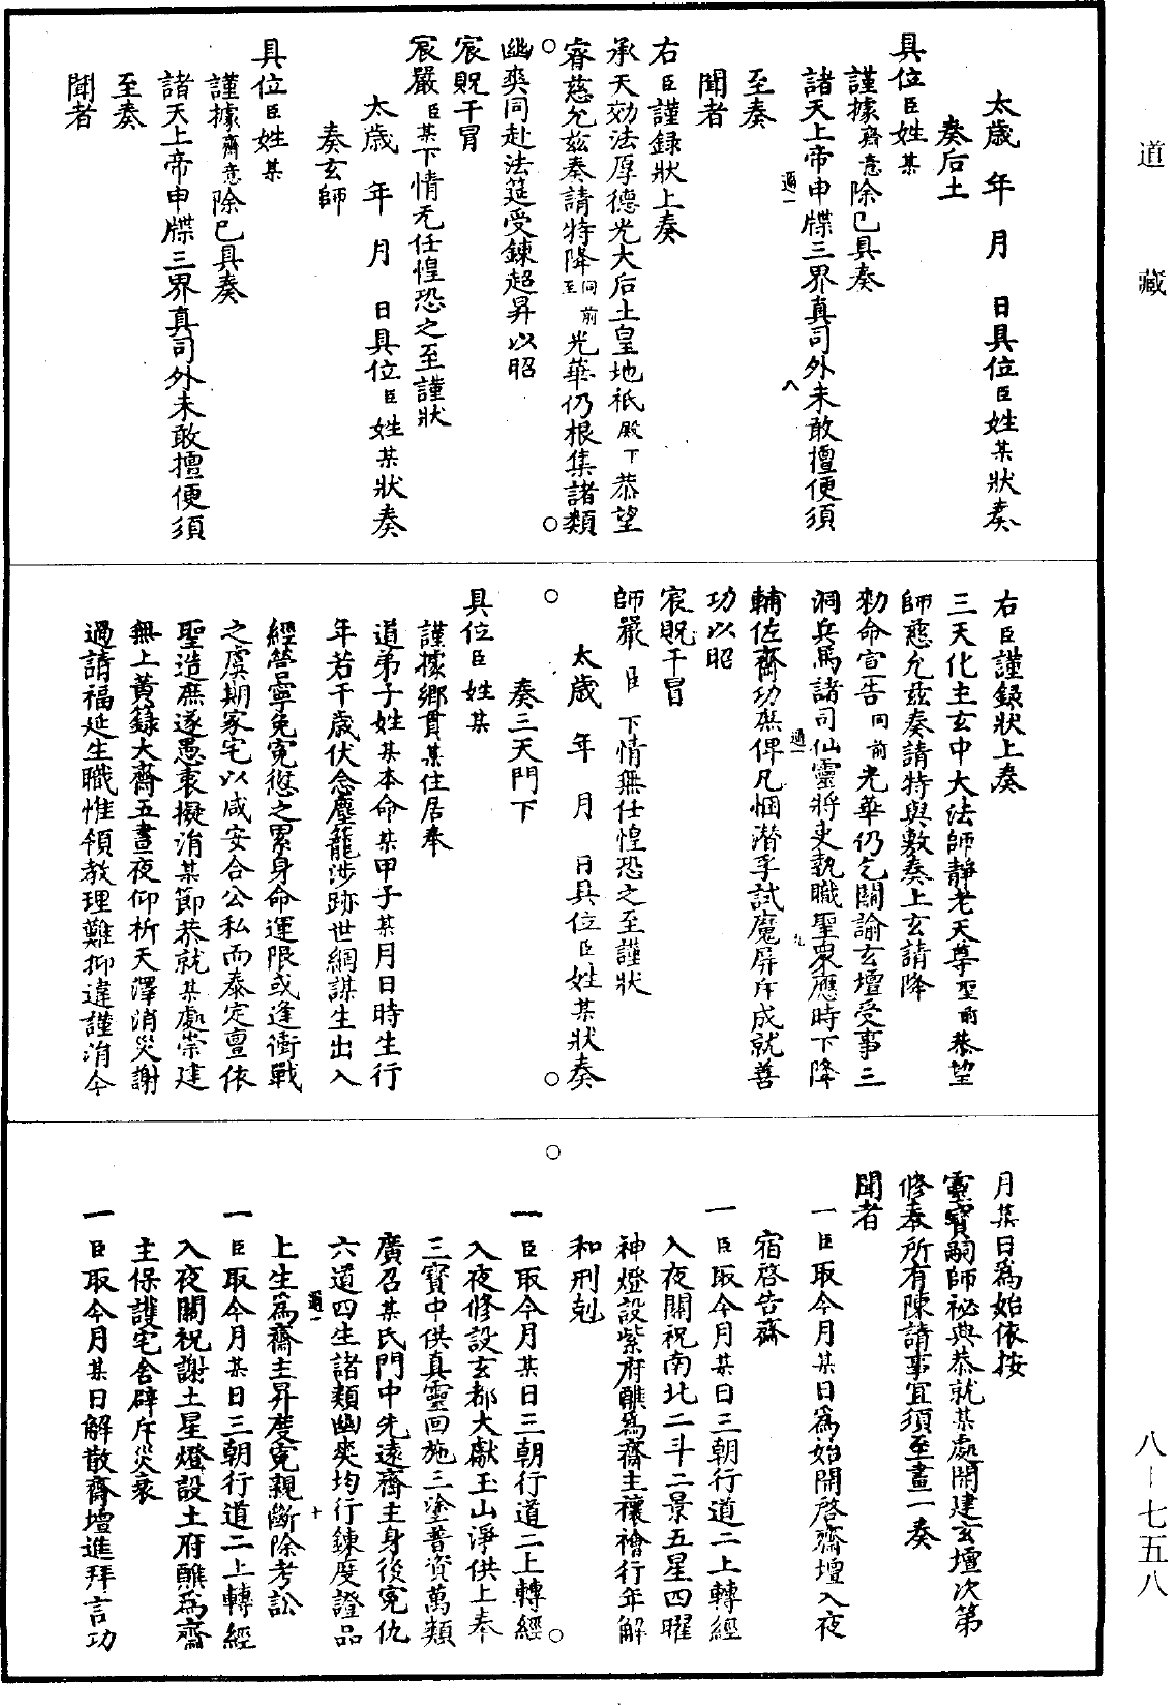 道藏
太歲 年 月 日具位臣姓某狀奏
奏后土
具位臣姓某
謹據齋意除已具奏
諸天上帝申牒三界真司外未敢擅便須
至奏
聞者
右臣謹録狀上奏
承天効法厚德光大后土皇地祇殿下恭望
睿慈允兹奏請特降同前至光華仍根集諸類
幽爽同赴法筵受鍊超昇以昭
宸貺干冒
宸嚴臣某下情无任惶恐之至謹狀
太歲 年 月 日具位臣姓某狀奏
奏玄師
具位臣姓某
謹據齋意除已具奏
諸天上帝申牒三界真司外未敢擅便須
至奏
聞者
右臣謹録狀上奏
三天化主玄中大法師靜老天尊聖前恭望
師慈允兹奏請特與敷奏上玄請降
勑命宣告同前光華仍乞關諭玄壇受事三
洞兵馬諸司仙靈將吏執職聖衆應時下降
輔佐齋功庶俾凡悃潜孚試魔屏斥成就善
功以昭
宸貺干冒
師嚴臣下情無任惶恐之至謹狀
太歲 年 月 日具位臣姓某狀奏
奏三天門下
具位臣姓某
謹據鄉貫某住居奉
道弟子姓某本命某甲子某月日時生行
年若干歲伏念塵籠涉跡世綱謀生出入
經營寧免寃愆之累身命運限或逢衝戰
之虞期家宅以咸安合公私而泰定亶依
聖造庶遂愚衷擬涓某節恭就某處崇建
無上黄籙大齋五晝夜仰祈天澤消災謝
過請福延生職惟領教理難抑違謹涓今
月某日爲始依按
靈寶嗣師祕典恭就某處開建玄壇次第
修奉所有陳請事宜須至畫一奏
聞者
一臣取今月某日爲始開啓齋壇入夜
宿啓告齋
一臣取今月某日三朝行道二上轉經
入夜關祝南北二斗二景五星四曜
神燈設紫府醮爲齋主禳禬行年解
和刑剋
一臣取今月某日三朝行道二上轉經
入夜修設玄都大獻玉山淨供上奉
三寶中供真靈回施三塗普資萬類
廣召某氏門中先遠齋主身後寃仇
六道四生諸類幽爽均行鍊度證品
上生爲齋主昇度寃親斷除考訟
一臣取今月某日三朝行道二上轉經
入夜關祝謝土星燈設土府醮爲齋
主保護宅舍辟斥災衰
一臣取今月某日解散齋壇進拜言功
八－七五八